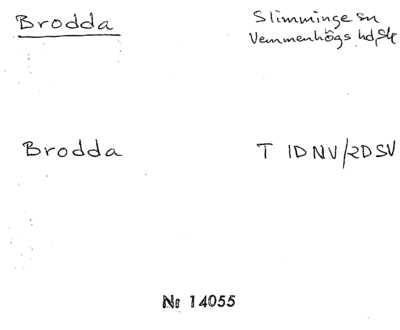 Brodda
Slimminge sn
Vemmenhögs hd, Sk
Brodda
T 1D NV/2D SV
No 14055